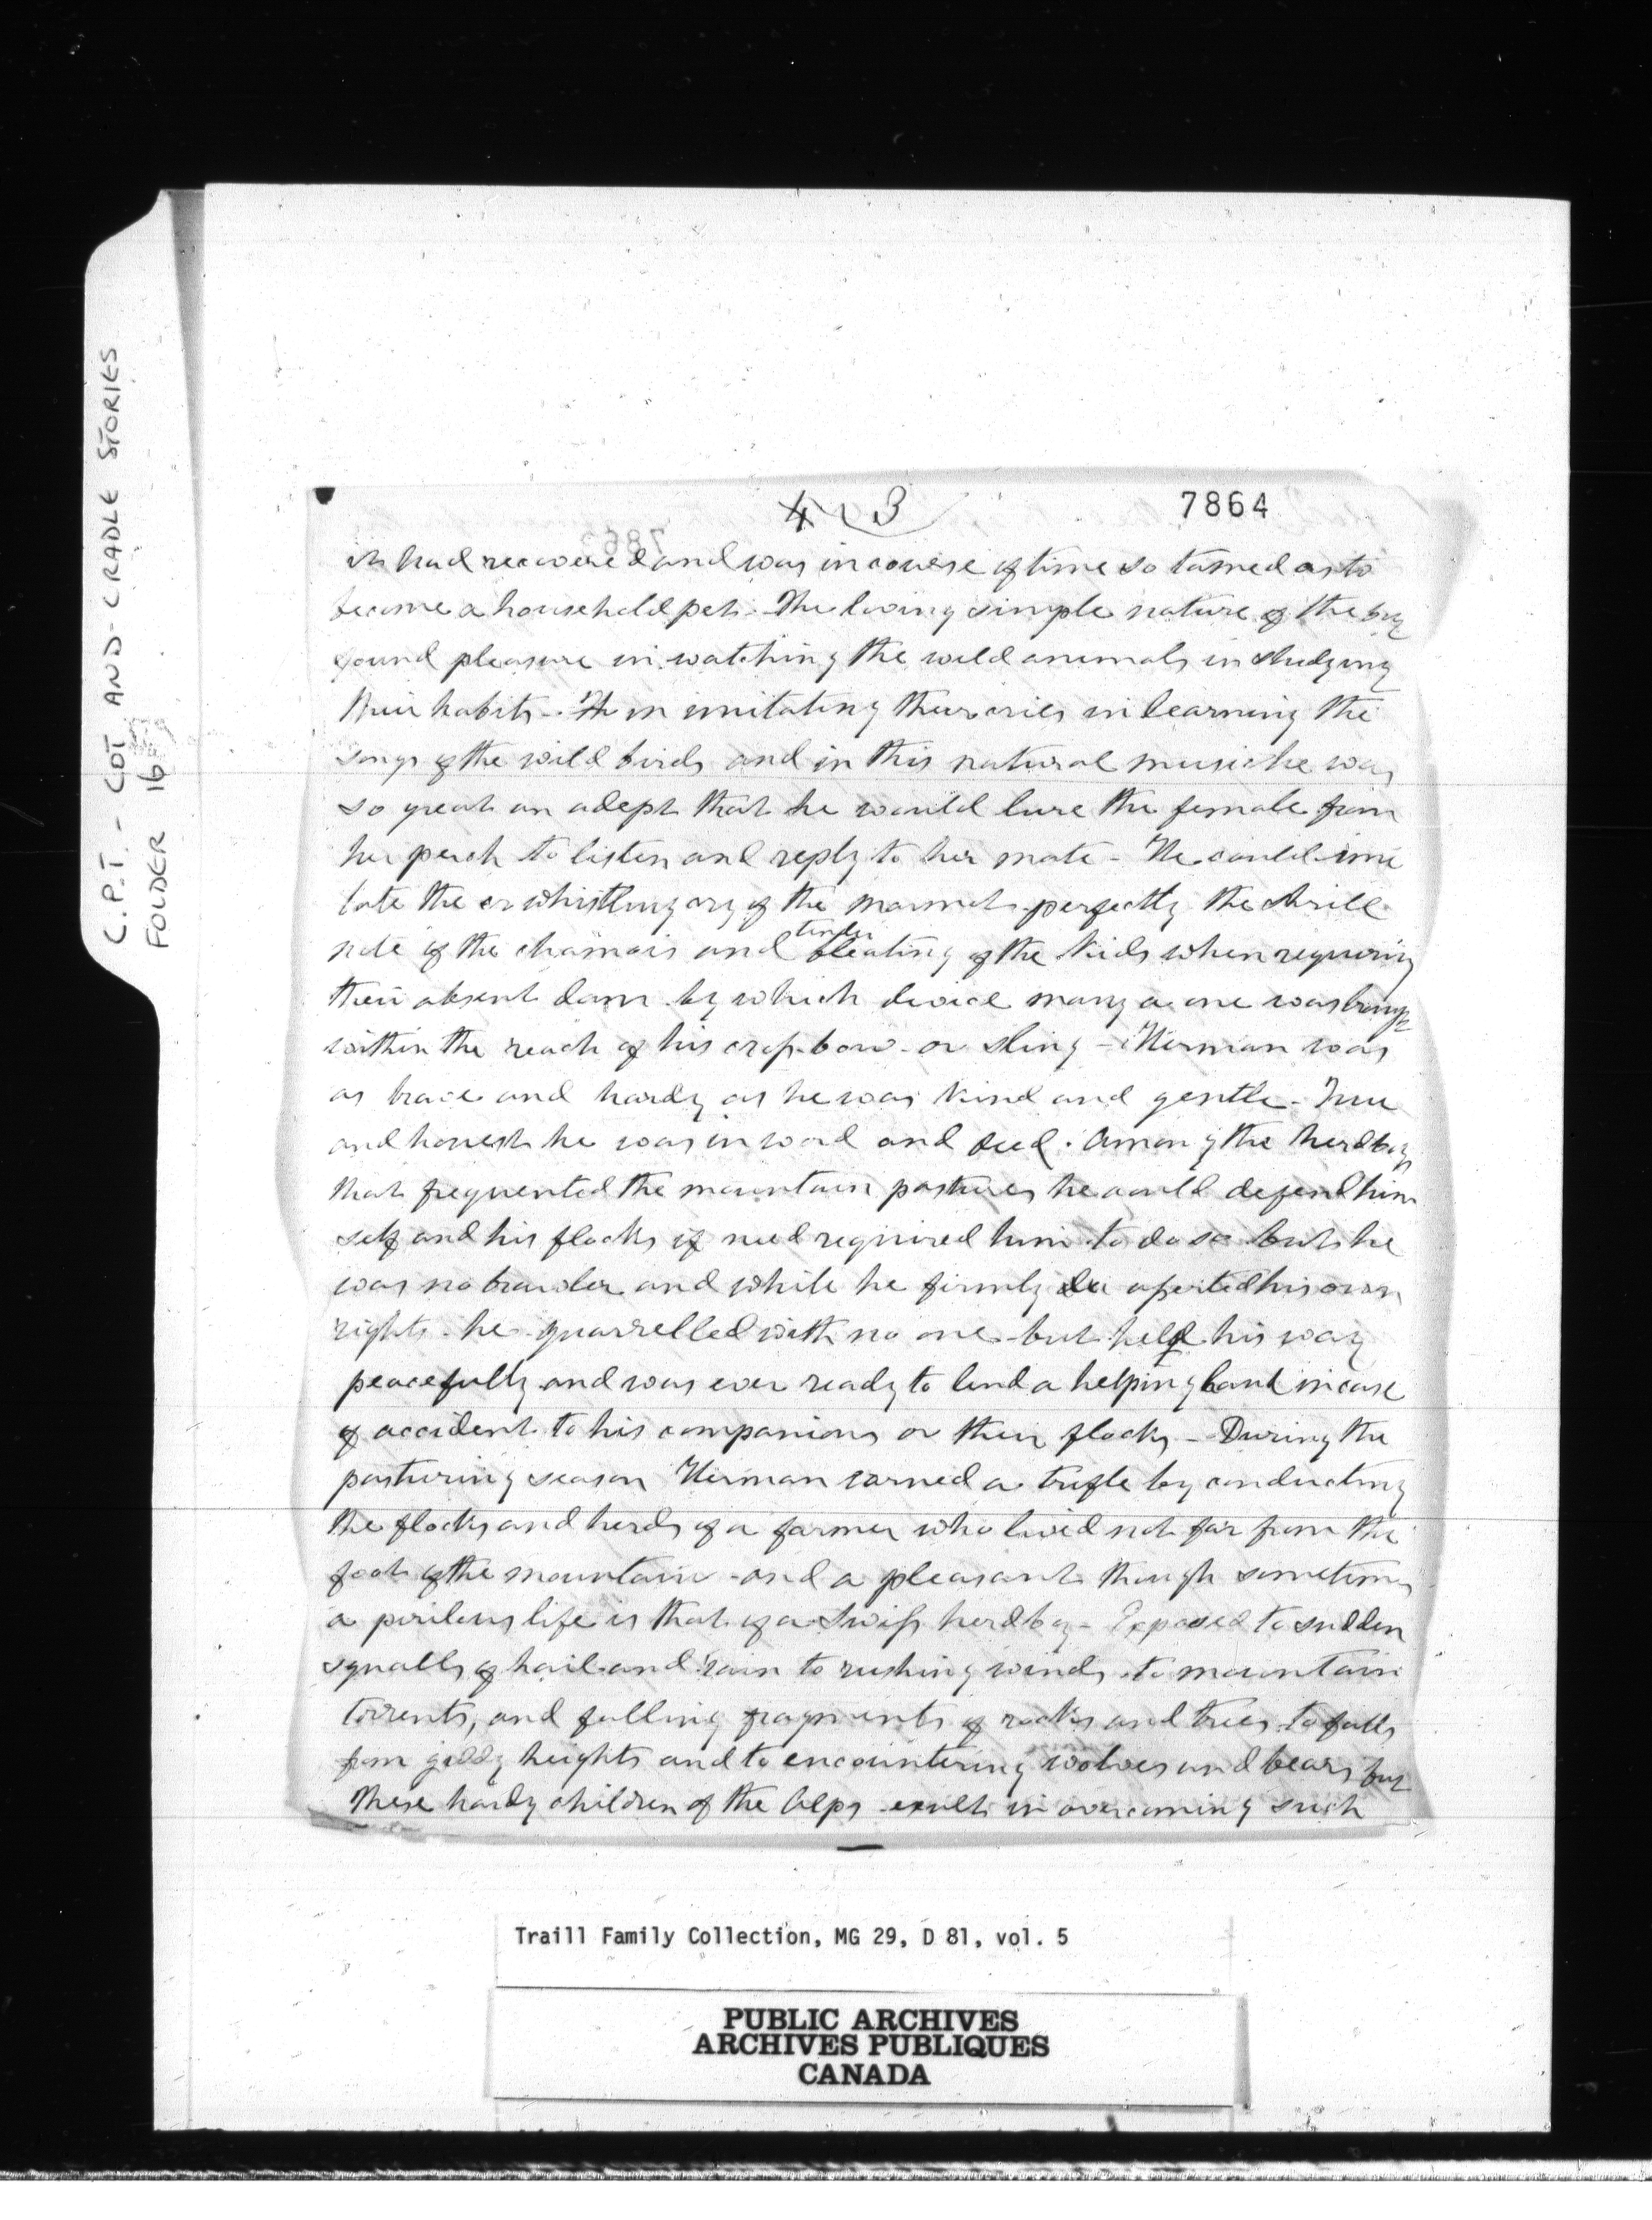 C.P.T. - COT AND CRADLE STORIES
FOLDER 16
4 3
7864
it had recovered and was in course of time so tamed as to
become a household pet. The loving simple nature of the boy
found pleasure in watching the wild animals in studying
their habits - in imitating their cries in learning the
songs of the wild birds and in this natural music he was
so great an adept that he would lure the female from
her perch to listen and reply to her mate - He could imi
tate the whistling cry of the marmot perfectly the shrill
note of the chamois and tender bleating of the kids when requiring
their absent dam by which device many a one was brought
within the reach of his cross-bow or sling - Herman was
as brave and hardy as he was kind and gentle - True
and honest he was in word and deed. Among the herdboys
that frequented the mountain pastures he could defend him
self and his flocks if need required him to do so but he
was no brawler and while he firmly asserted his own
rights he quarrelled with no one but held his way
peacefully and was ever ready to lend a helping hand in case
of accident to his companions or their flocks - During the
pasturing season Herman earned a trifle by conducting
the flocks and herds of a farmer who lived not far from the
foot of the mountain - and a pleasant though sometimes
a perilous life is that of a Swiss herdboy - Exposed to sudden
squalls of hail and rain to rushing winds to mountain
torrents, and falling fragments of rocks and trees to falls
from giddy heights and to encountering wolves and bears but
these hardy children of the Alps exult in overcoming such
Traill Family Collection, MG 29, D 81, vol. 5
PUBLIC ARCHIVES
ARCHIVES PUBLIQUES
CANADA